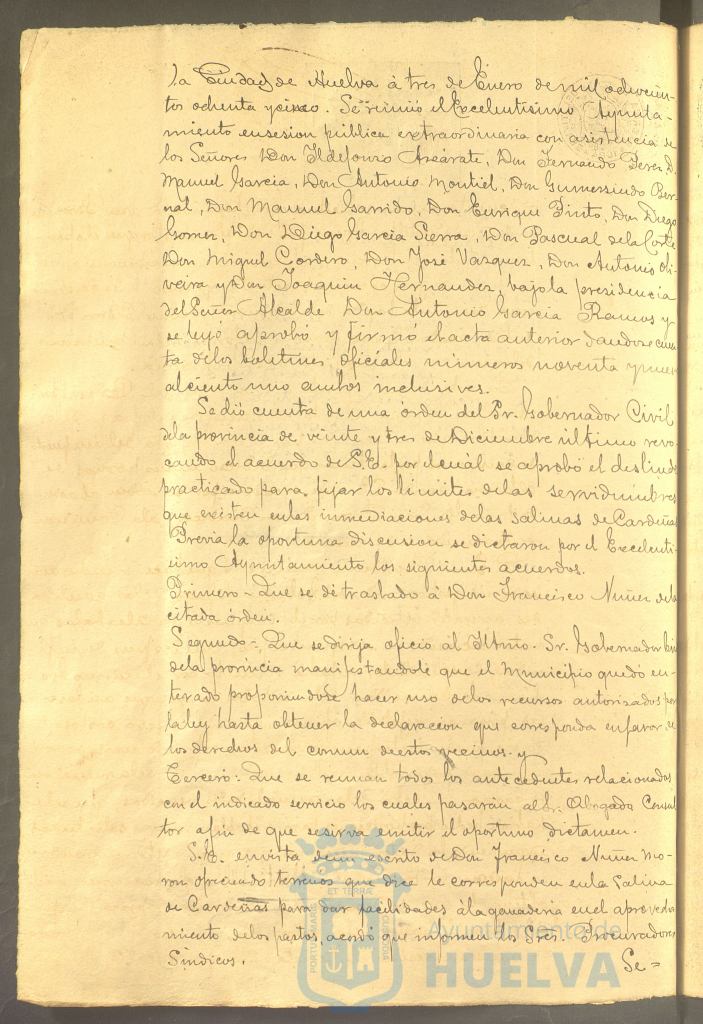 La Ciudad de Huelva á tres de Enero de mil ochocien-
tos ochenta y cinco. Se reunió el Excelentísimo Ayunta-
miento en sesion pública extraordinaria con asistencia de
los Señores Don Ildefonso Azcárate, Don Fernando Perez, D.
Manuel Garcia, Don Antonio Montiel, Don Gumersindo Ber-
nal, Don Manuel Garrido, Don Enrique Pinto, Don Diego
Gomez, Don Diego Garcia Sierra, Don Pascual de la Corte
Don Miguel Cordero, Don José Vazquez, Don Antonio Oli-
veira y Don Joaquin Hernandez, bajo la presidencia
del Señor Alcalde Don Antonio Garcia Ramos y
se leyó aprobó y firmó el acta anterior dandose cuen-
ta de los boletines oficiales números noventa y nueve
al ciento uno ambos inclusives.
Se dió cuenta de una órden del Sr. Gobernador Civil
de la provincia de veinte y tres de Diciembre último revo-
cando el acuerdo de S.E. por el cuál se aprobó el deslinde
practicado para fijar los límites de las servidumbres
que existen en las inmediaciones de las salinas de Cardeñas
Previa la oportuna discusion se dictaron por el Excelentí-
simo Ayuntamiento los siguientes acuerdos.
Primero - Que se dé traslado á Don Francisco Nuñez de la
citada órden.
Segundo - Que se dirija oficio al Iltmo. Sr. Gobernador Civil
de la provincia manifestandole que el Municipio quedó en-
terado proponiendose hacer uso de los recursos autorizados por
la ley hasta obtener la declaracion que corresponda en favor de
los derechos del comun de estos vecinos. y
Tercero: Que se reunan todos los antecedentes relacionados
con el indicado servicio los cuales pasarán al Sr. Abogado Consul
tor afin de que se sirva emitir el oportuno dictamen.
S.E. en vista de un escrito de Don Francisco Nuñez Mo-
ron ofreciendo terrenos que dice le corresponden en la Salina
de Cardeñas para dar facilidades á la ganaderia en el aprovecha
miento de los pastos, acordó que informen los Sres. Procuradores
Síndicos.
Se=
Ayuntamiento de
HUELVA